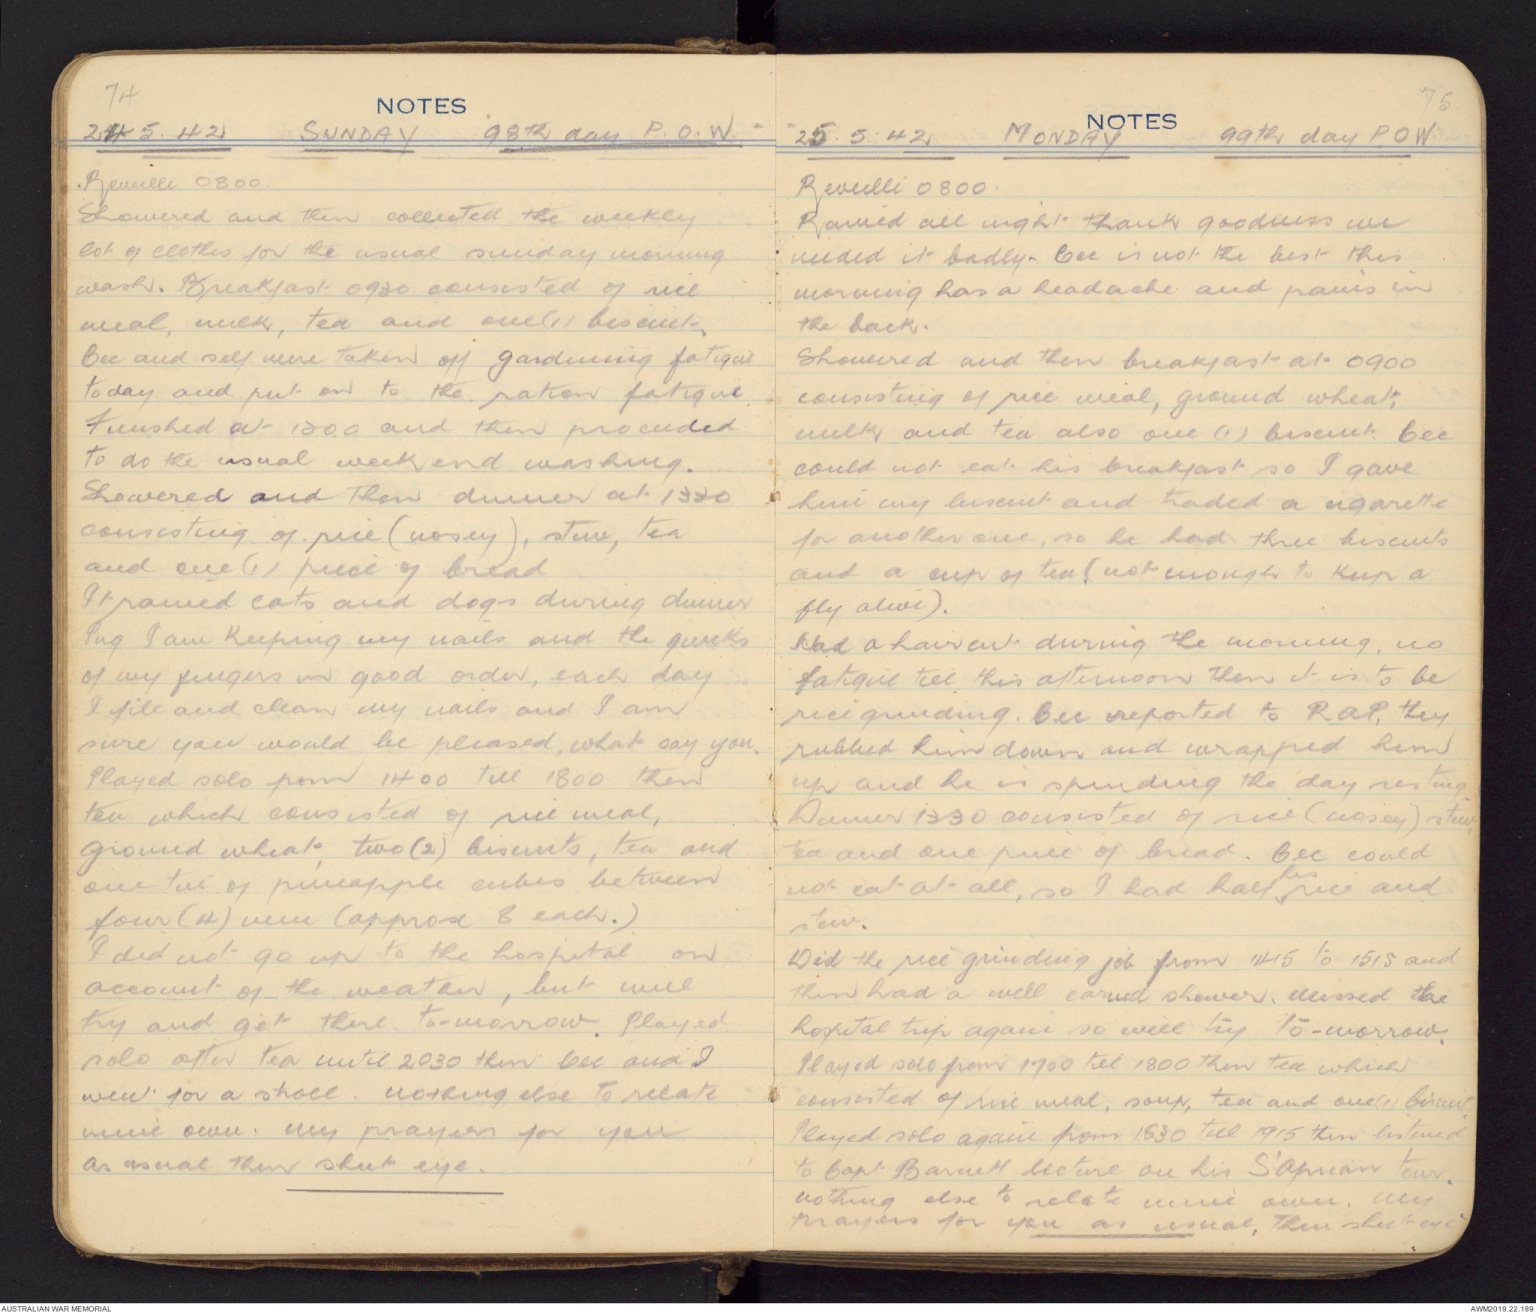 74
NOTES
24.5.42 SUNDAY 98th day P.O.W.
Reveilli 0800.
Showered and then collected the weekly
lot of clothes for the usual sunday morning
wash. Breakfast 0930 consisted of rice
meal, milk, tea and one (1) biscuit,
Cec and self were taken off gardening fatigue
today and put on to the ration fatigue
Finished at 1300 and then proceeded
to do the usual week end washing.
Showered and then dinner at 1330
consisting of rice (nosey), stew, tea
and one (1) piece of bread
It rained cats and dogs during dinner
Pug I am keeping my nails and the quicks
of my fingers in good order, each day
I file and clean my nails and I am
sure you would be pleased, what say you.
Played solo from 1400 till 1800 then
tea which consisted of rice meal,
ground wheat, two (2) biscuits, tea and
one tin of pineapple cubes between
four (4) men (approx 8 each.)
I did not go up to the hospital on
account of the weather, but will
try and get there to-morrow. Played
solo after tea until 2030 then Cec and I
went for a stroll. nothing else to relate
mine own. My prayers for you
as usual then shut eye.
75
NOTES
25.5.42 MONDAY 99th day P O W
Reveilli 0800.
Rained all night thank goodness we
needed it badly. Cec is not the best this
morning has a headache and pains in
the back.
Showered and then breakfast at 0900
consisting of rice meal, ground wheat,
milk and tea also one (1) biscuit. Cec
could not eat his breakfast so I gave
him my biscuit and traded a cigarette
for another one, so he had three biscuits
and a cup of tea (not enough to keep a
fly alive).
Had a haircut during the morning, no
fatigue till this afternoon then it is to be
rice grinding. Cec reported to RAP, they
rubbed him down and wrapped him
up and he is spending the day resting
Dinner 1330 consisted of rice (nosey) stew,
tea and one piece of bread. Cec could
not eat at all, so I had half his rice and
stew.
Did the rice grinding job from 1415 to 1515 and
then had a well earned shower. Missed the
hospital trip again so will try to-morrow.
Played solo from 1700 till 1800 then tea which
consisted of rice meal, soup, tea and one (1) biscuit
Played solo again from 1830 till 1915 then listened
to Capt Barnett lecture on his S'African tour.
nothing else to relate mine own. My
prayers for you as usual, then shut eye
AUSTRALIAN WAR MEMORIAL
AWM2019.22.189